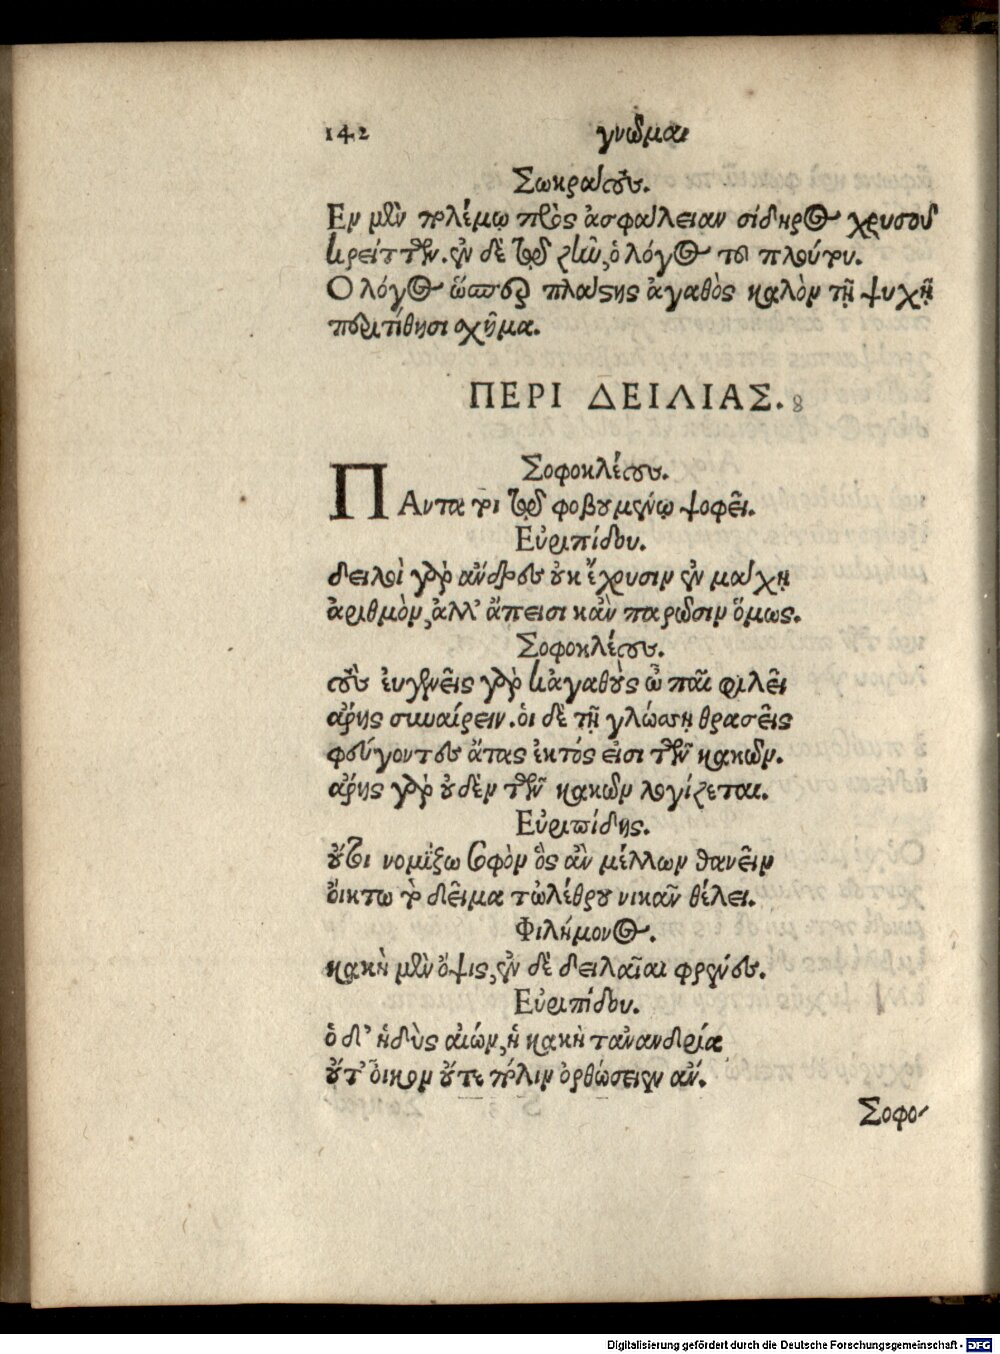 142 γνῶμαι
Σωκράτους.
Εν μὲν πολέμῳ πρὸς ἀσφάλειαν σίδηρος χρυσοῦ
κρείττων. ἐν δὲ τῷ ζῆν, ὁ λόγος τοῦ πλούτου.
Ο λόγος ὥσπερ πλάστης ἀγαθὸς καλὸν τῇ ψυχῇ
περιτίθησι σχῆμα.
ΠΕΡΙ ΔΕΙΛΙΑΣ.
Σοφοκλέους.
ΠΑντα τοι τῷ φοβουμένῳ ψοφεῖ.
Εὐριπίδου.
δειλοὶ γὰρ ἄνδρες οὐκ ἔχουσιν ἐν μάχῃ
ἀριθμὸν, ἀλλ' ἄπεισι κἂν παρῶσιν ὅμως.
Σοφοκλέους.
τοὺς εὐγενεῖς γὰρ κἀγαθοὺς ὦ παῖ φιλεῖ
ἄρης συναίρειν. οἱ δὲ τῇ γλώσσῃ θρασεῖς
φεύγοντες ἄτας ἐκτός εἰσι τῶν κακῶν.
ἄρης γὰρ οὐδὲν τῶν κακῶν λογίζεται.
Εὐριπίδης.
οὔτοι νομίξω σοφὸν ὃς ἂν μέλλων θανεῖν
οἴκτω τὸ δεῖμα τὠλέθρου νικᾶν θέλει.
Φιλήμονος.
κακὴ μὲν ὄψις, ἐν δὲ δειλαῖαι φρένες.
Εὐριπίδου.
ὁ δ' ἡδὺς αἰών, ἡ κακὴ τἀνανδρία
οὔτ' οἶκον οὔτε πόλιν ὀρθώσειεν ἄν.
Σοφο-
Digitalisierung gefördert durch die Deutsche Forschungsgemeinschaft - DFG